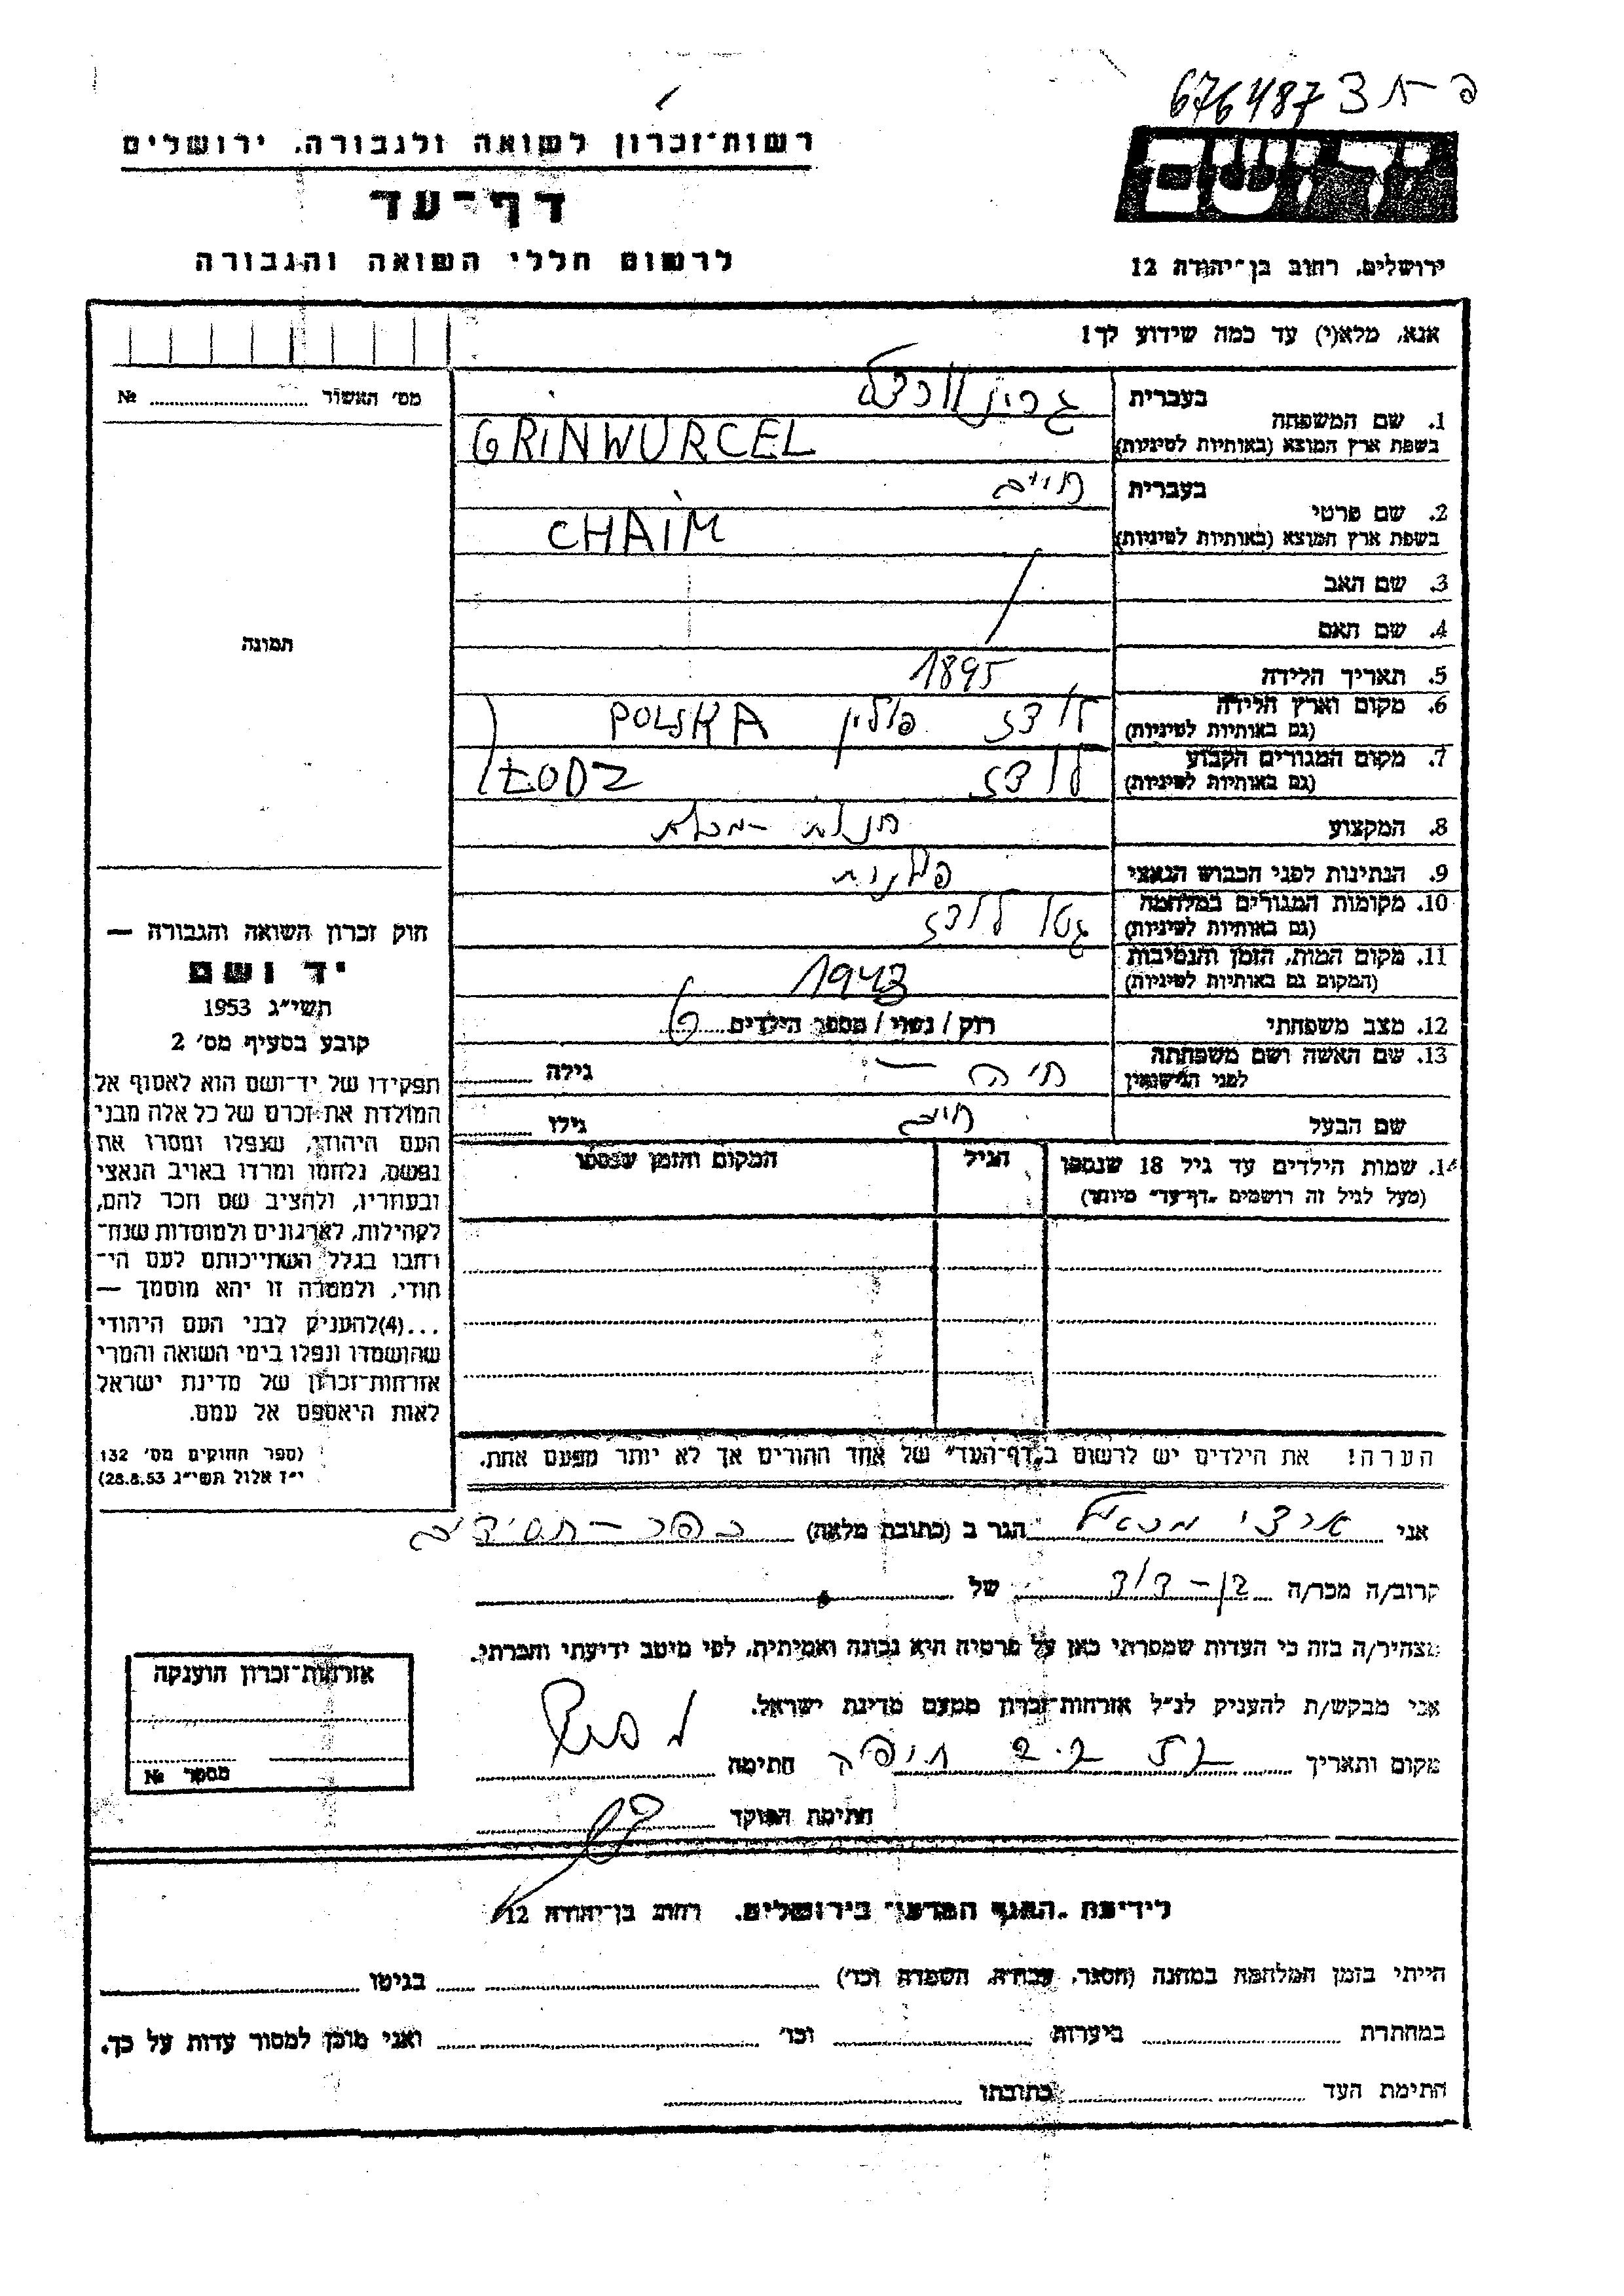 676487 פ-ת 3
יד ושם
ירושלים, רחוב בן־יהודה 12
רשות־זכרון לשואה ולגבורה, ירושלים
דף־עד
לרשום חללי השואה והגבורה
אנא, מלא(י) עד כמה שידוע לך!
מס׳ האשור ........ №
תמונה
1. שם המשפחה
בעברית גרינוורצל
בשפת ארץ המוצא (באותיות לטיניות) GRINWURCEL
2. שם פרטי
בעברית חיים
בשפת ארץ המוצא (באותיות לטיניות) CHAIM
3. שם האב
4. שם האם
5. תאריך הלידה 1895
6. מקום וארץ הלידה לודז פולין POLSKA
(גם באותיות לטיניות)
7. מקום המגורים הקבוע לודז ŁODZ
(גם באותיות לטיניות)
8. המקצוע חנות מכלת
9. הנתינות לפני הכבוש הנאצי פולנית
10. מקומות המגורים במלחמה גטו לודז
(גם באותיות לטיניות)
11. מקום המות, הזמן והנסיבות 1943
(המקום גם באותיות לטיניות)
12. מצב משפחתי רוק / נשוי / מספר הילדים
13. שם האשה ושם משפחתה חיה — גילה
לפני הנישואין
שם הבעל חיים גילו
14. שמות הילדים עד גיל 18 שנספו הגיל המקום והזמן שנספו
(מעל לגיל זה רושמים „דף־עד״ מיוחד)
הערה! את הילדים יש לרשום ב„דף־העד״ של אחד ההורים אך לא יותר מפעם אחת.
חוק זכרון השואה והגבורה —
יד ושם
תשי״ג 1953
קובע בסעיף מס׳ 2
תפקידו של יד־ושם הוא לאסוף אל
המולדת את זכרם של כל אלה מבני
העם היהודי, שנפלו ומסרו את
נפשם, נלחמו ומרדו באויב הנאצי
ובעוזריו, ולהציב שם וזכר להם,
לקהילות, לארגונים ולמוסדות שנח־
רבו בגלל השתייכותם לעם הי־
הודי, ולמטרה זו יהא מוסמך —
...(4)להעניק לבני העם היהודי
שהושמדו ונפלו בימי השואה והמרי
אזרחות־זכרון של מדינת ישראל
לאות היאספם אל עמם.
(ספר החוקים מס׳ 132
י״ז אלול תשי״ג 28.8.53)
אני ארצי מכאל הגר ב (כתובת מלאה) כפר-חסידים
קרוב/ה מכר/ה בן-דוד של
מצהיר/ה בזה כי העדות שמסרתי כאן על פרטיה היא נכונה ואמיתית, לפי מיטב ידיעתי והכרתי.
אני מבקש/ת להעניק לנ״ל אזרחות־זכרון מטעם מדינת ישראל.
מקום ותאריך חיפה חתימה
חתימת הפוקד
אזרחות־זכרון הוענקה
מספר №
לידיעת „האגף המדעי״ בירושלים, רחוב בן־יהודה 12
הייתי בזמן המלחמה במחנה (הסגר, עבודה, השמדה וכו׳) בגיטו
במחתרת ביערות וכו׳ ואני מוכן למסור עדות על כך.
חתימת העד כתובתו